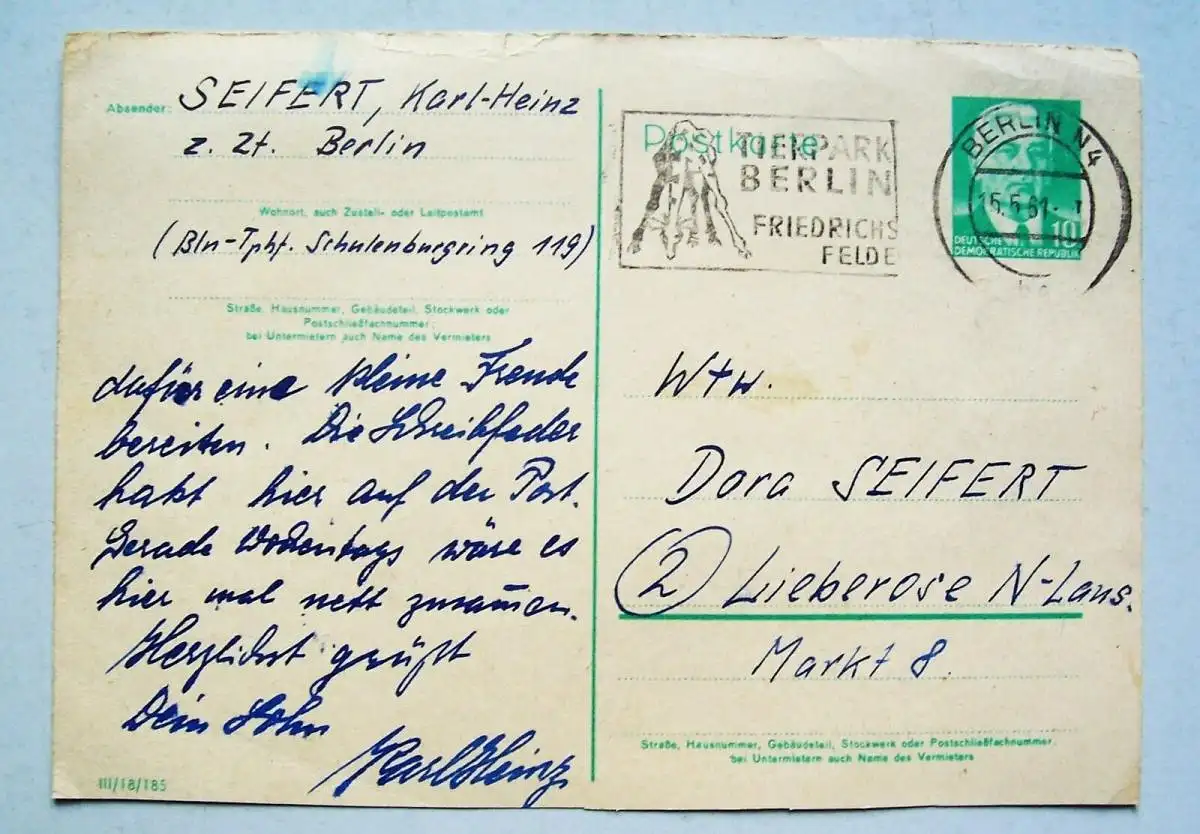 Absender: SEIFERT, Karl-Heinz
z. Zt. Berlin
Wohnort, auch Zustell- oder Leitpostamt
(Bln-Tphf. Schulenburgring 119)
Straße, Hausnummer, Gebäudeteil, Stockwerk oder
Postschließfachnummer;
bei Untermietern auch Name des Vermieters
dafür eine kleine Freude
bereiten. Die Schreibfeder
hakt hier auf der Post.
Gerade Wochentags wäre es
hier mal nett zusammen.
Herzlichst grüßt
Dein Sohn
Karl Heinz
III/18/185
Postkarte
TIERPARK
BERLIN
FRIEDRICHS
FELDE
BERLIN N4
15.5.61
10
DEUTSCHE
DEMOKRATISCHE REPUBLIK
Wtw.
Dora SEIFERT
(2) Lieberose N-Laus.
Markt 8.
Straße, Hausnummer, Gebäudeteil, Stockwerk oder Postschließfachnummer;
bei Untermietern auch Name des Vermieters